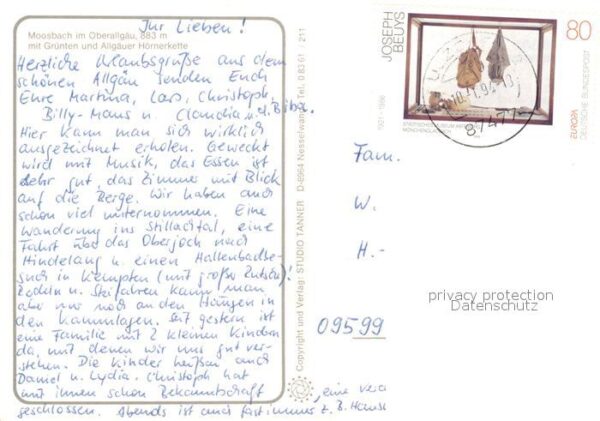 Ihr Lieben!
Moosbach im Oberallgäu, 883 m
mit Grünten und Allgäuer Hörnerkette
Herzliche Urlaubsgrüße aus dem
schönen Allgäu senden Euch
Eure Martina, Lars, Christoph,
Billy-Maus u. Claudia u. d. Biba.
Hier kann man sich wirklich
ausgezeichnet erholen. Geweckt
wird mit Musik, das Essen ist
sehr gut, das Zimmer mit Blick
auf die Berge. Wir haben auch
schon viel unternommen. Eine
Wanderung ins Stillachtal, eine
Fahrt über das Oberjoch nach
Hindelang u. einen Hallenbadbe-
such in Kempten (mit großer Rutsche)!
Rodeln u. Skifahren kann man
aber nur noch an den Hängen in
den Kammlagen. Seit gestern ist
eine Familie mit 2 kleinen Kindern
da, mit denen wir uns gut ver-
stehen. Die Kinder heißen auch
Daniel u. Lydia. Christoph hat
mit ihnen schon Bekanntschaft
geschlossen. Abends ist auch fast immer z. B. Hausm
, eine vera
Copyright und Verlag: STUDIO TANNER D-8964 Nesselwang Tel. 0 83 61 / 211
JOSEPH
BEUYS
80
1921 - 1986
STÄDTISCHES MUSEUM
MÖNCHENGLADBACH
EUROPA
DEUTSCHE BUNDESPOST
87477
Fam.
W.
H.-
09599
privacy protection
Datenschutz